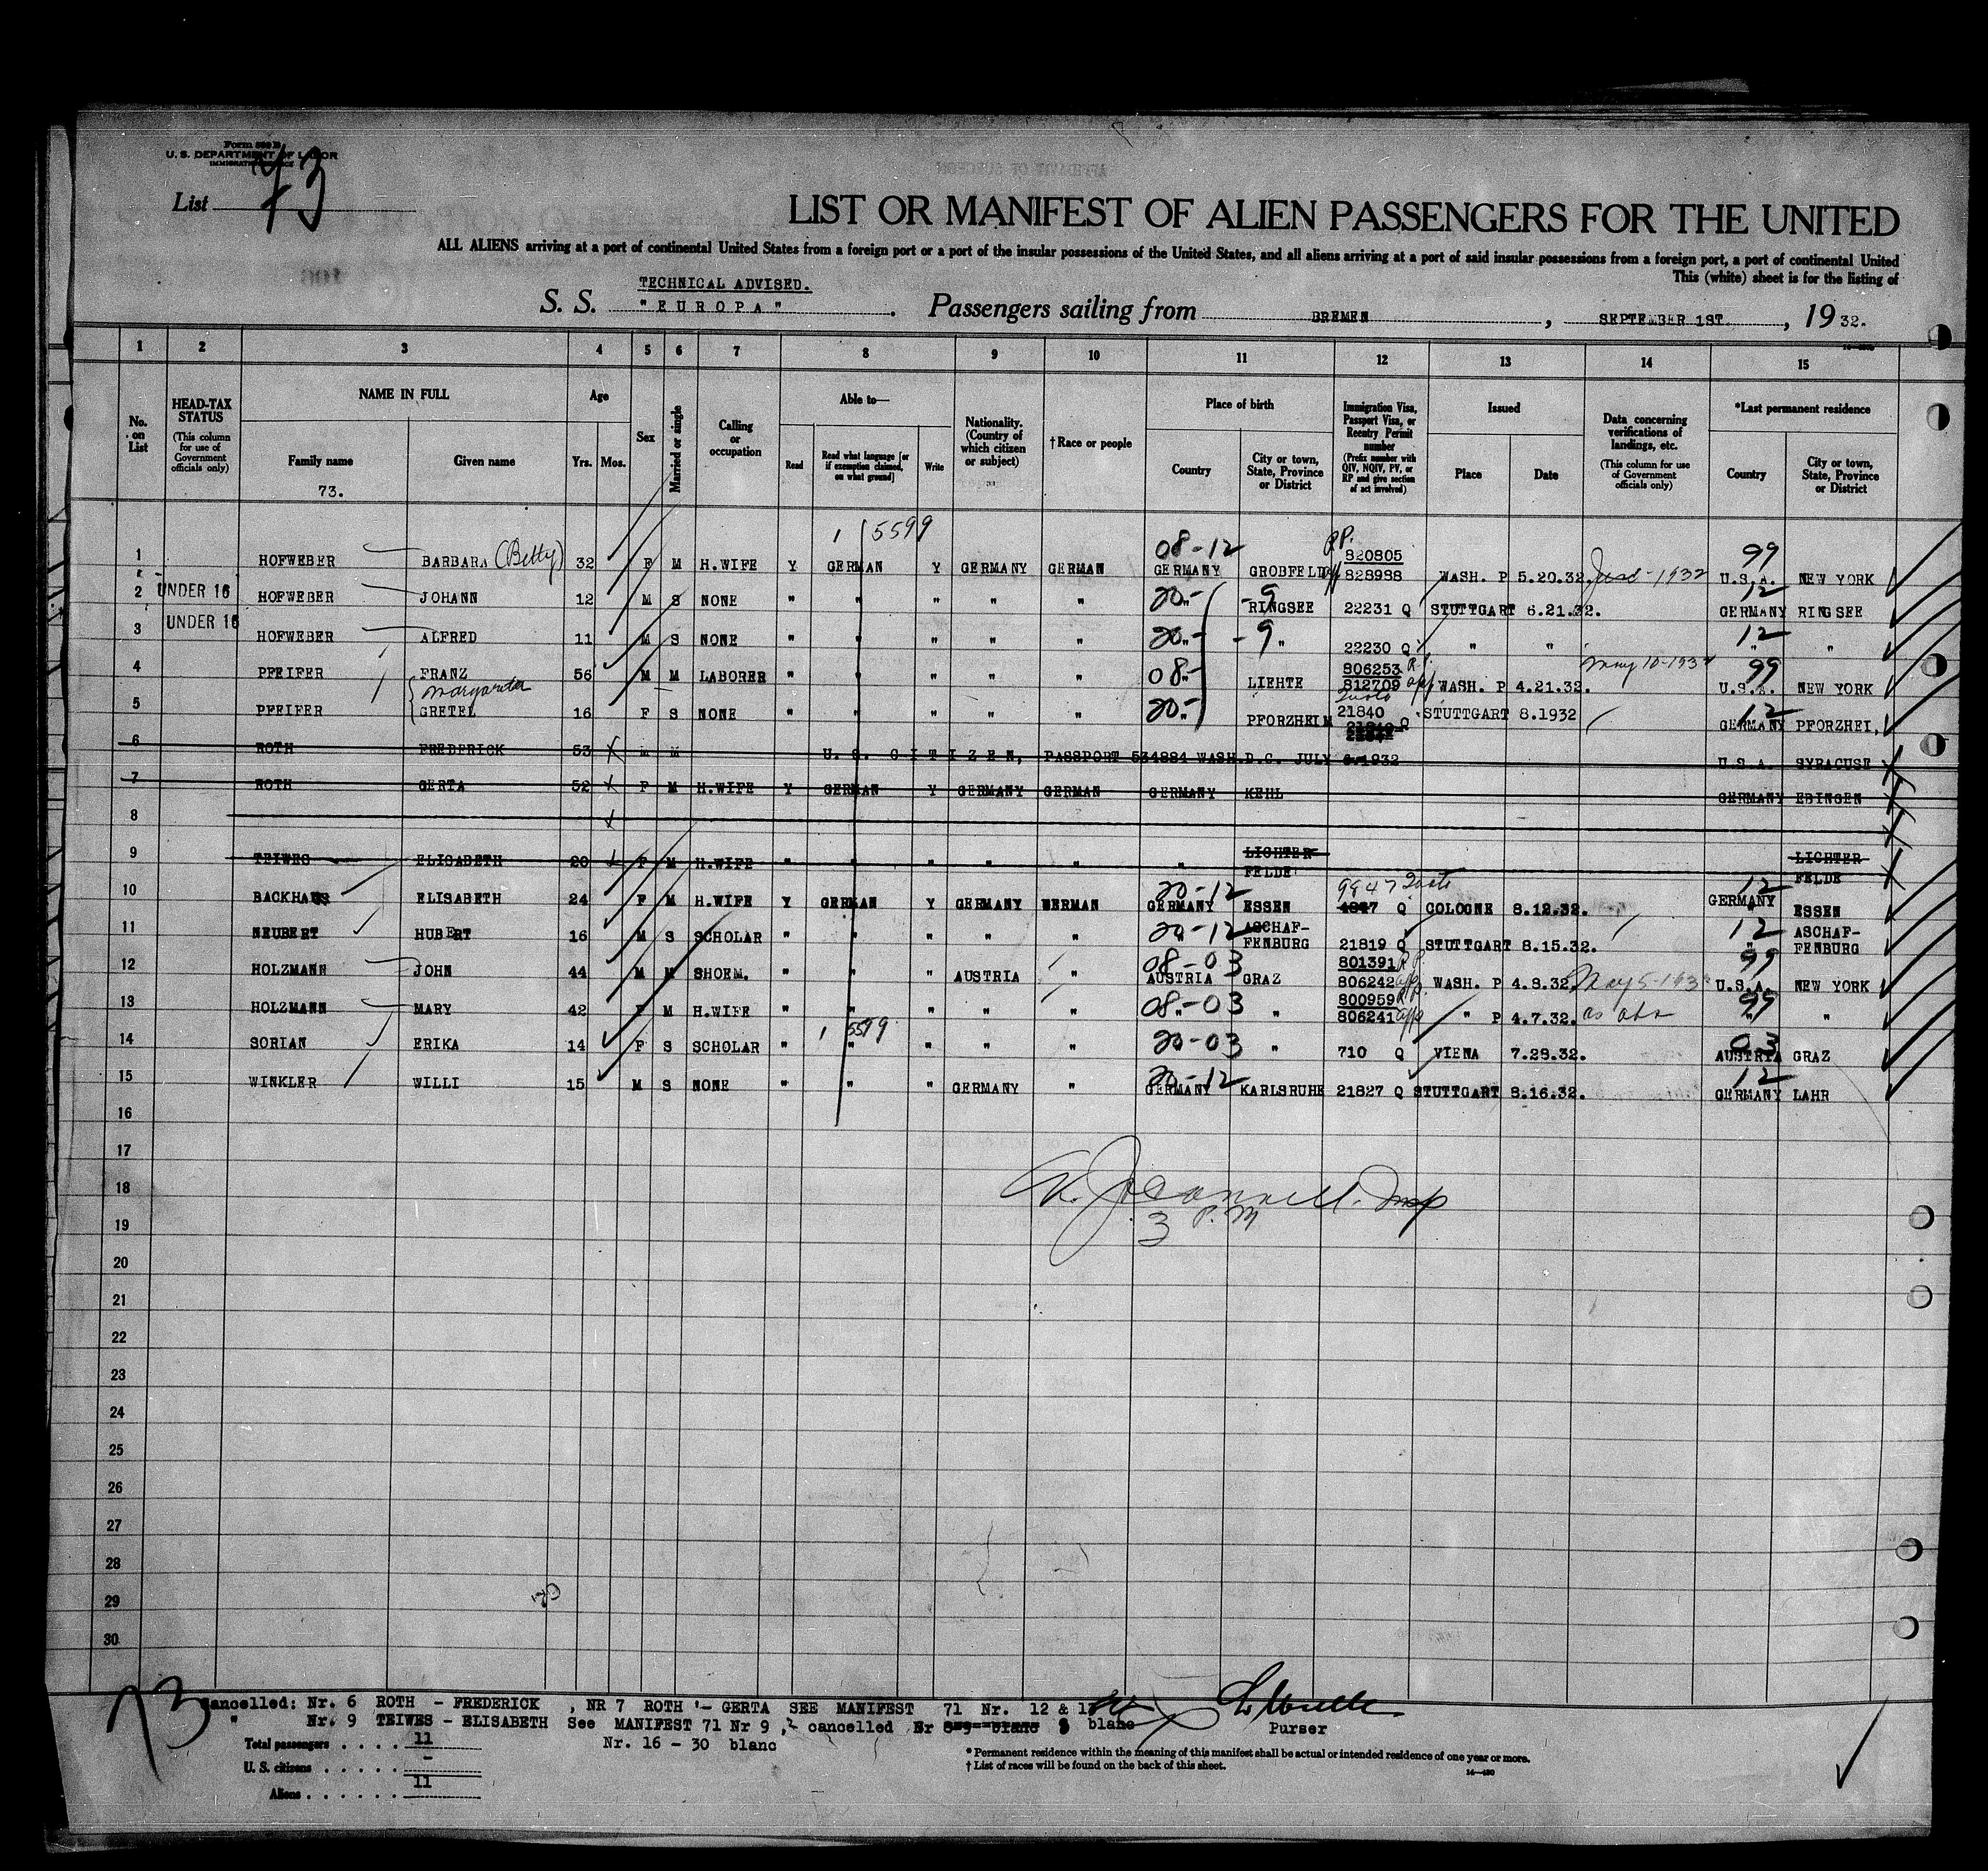 Form 500 B
U. S. DEPARTMENT OF LABOR
IMMIGRATION SERVICE
List 73
LIST OR MANIFEST OF ALIEN PASSENGERS FOR THE UNITED
ALL ALIENS arriving at a port of continental United States from a foreign port or a port of the insular possessions of the United States, and all aliens arriving at a port of said insular possessions from a foreign port, a port of continental United
This (white) sheet is for the listing of
TECHNICAL ADVISED.
S. S. "EUROPA". Passengers sailing from BREMEN, SEPTEMBER 1ST, 1932.
1 2 3 4 5 6 7 8 9 10 11 12 13 14 15
No. on List
HEAD-TAX STATUS (This column for use of Government officials only)
NAME IN FULL Family name Given name
73.
Age Yrs. Mos.
Sex
Married or single
Calling or occupation
Able to— Read Read what language [or if exemption claimed, on what ground] Write
Nationality. (Country of which citizen or subject)
†Race or people
Place of birth Country City or town, State, Province or District
Immigration Visa, Passport Visa, or Reentry Permit number (Prefix number with QIV, NQIV, PV, or RP and give section of act involved)
Issued Place Date
Data concerning verifications of landings, etc. (This column for use of Government officials only)
*Last permanent residence Country City or town, State, Province or District
1 5599
08-12 RP. 820805 99
1 HOFWEBER BARBARA (Betty) 32 F M H.WIFE Y GERMAN Y GERMANY GERMAN GERMANY GROBFELD 828988 WASH. P 5.20.32. 1932 U.S.A. NEW YORK
2 UNDER 16 HOFWEBER JOHANN 12 M S NONE " " " " " 20- " -9 RINGSEE 22231 Q STUTTGART 6.21.32. 12 GERMANY RINGSEE
3 UNDER 16 HOFWEBER ALFRED 11 M S NONE " " " " " 20- " -9 " 22230 Q " " 12 " "
4 PFEIFER FRANZ 56 M M LABORER " " " " " 08- " LIEHTE 806253 R.P. 812709 app WASH. P 4.21.32. May 10-1932 99 U.S.A. NEW YORK
Margareta
5 PFEIFER GRETEL 16 F S NONE " " " " " 20- " PFORZHEIM 21840 Q STUTTGART 8.1932 12 GERMANY PFORZHEI,
6 ROTH FREDERICK 53 M M U.S. CITIZEN, PASSPORT 534884 WASH.D.C. JULY 1932 U.S.A. SYRACUSE
7 ROTH GERTA 52 F M H.WIFE Y GERMAN Y GERMANY GERMAN GERMANY KEHL GERMANY EBINGEN
8
9 TEIWES ELISABETH 20 F M H.WIFE " " " " " " LICHTER FELDE LICHTER FELDE
10 BACKHAUS ELISABETH 24 F M H.WIFE Y GERMAN Y GERMANY GERMAN 20-12 GERMANY ESSEN 9847 Q COLOGNE 8.12.32. 12 GERMANY ESSEN
11 NEUBERT HUBERT 16 M S SCHOLAR " " " " " 20-12 " ASCHAF-FENBURG 21819 Q STUTTGART 8.15.32. 12 " ASCHAF-FENBURG
12 HOLZMANN JOHN 44 M M SHOEM. " " " AUSTRIA " 08-03 AUSTRIA GRAZ 801391 R.P. 806242 app WASH. P 4.8.32. May 5-1932 99 U.S.A. NEW YORK
13 HOLZMANN MARY 42 F M H.WIFE " " " " " 08-03 " " 800959 R.P. 806241 app " P 4.7.32. as abv 99 " "
1 5599
14 SORIAN ERIKA 14 F S SCHOLAR " " " " " 20-03 " 710 Q VIENA 7.29.32. 03 AUSTRIA GRAZ
15 WINKLER WILLI 15 M S NONE " " " GERMANY " 20-12 GERMANY KARLSRUHE 21827 Q STUTTGART 8.16.32. 12 GERMANY LAHR
16
17
18
3 P.M
19
20
21
22
23
24
25
26
27
28
29
30
73
Cancelled: Nr. 6 ROTH - FREDERICK , NR 7 ROTH - GERTA SEE MANIFEST 71 Nr. 12 & 13
" Nr. 9 TEIWES - ELISABETH See MANIFEST 71 Nr 9, cancelled Nr 8 blanc
Nr. 16 - 30 blanc
Purser
Total passengers . . . . 11
U. S. citizens . . . . . -
Aliens . . . . . . 11
* Permanent residence within the meaning of this manifest shall be actual or intended residence of one year or more.
† List of races will be found on the back of this sheet.
14—430